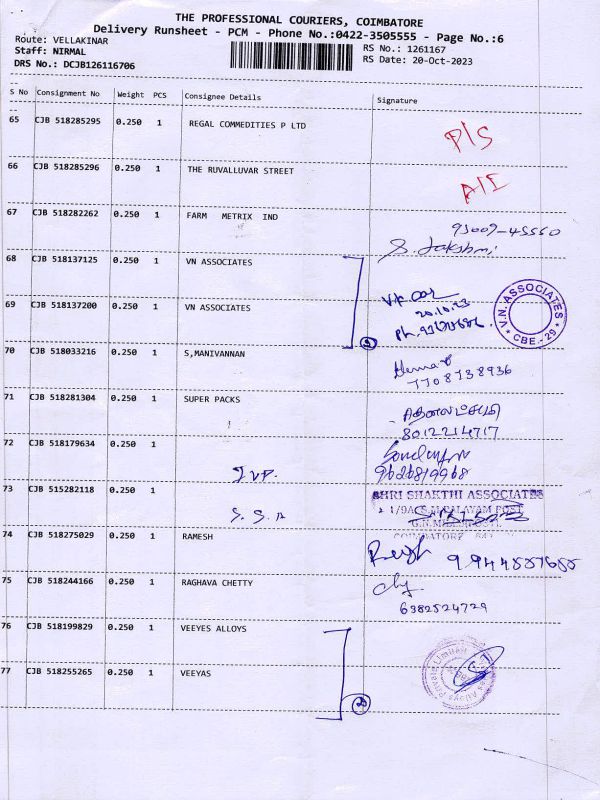 THE PROFESSIONAL COURIERS, COIMBATORE
Delivery Runsheet - PCM - Phone No.:0422-3505555 - Page No.:6
Route: VELLAKINAR
RS No.: 1261167
Staff: NIRMAL
RS Date: 20-Oct-2023
DRS No.: DCJB126116706
S No Consignment No Weight PCS Consignee Details Signature
65 CJB 518285295 0.250 1 REGAL COMMEDITIES P LTD P/S
66 CJB 518285296 0.250 1 THE RUVALLUVAR STREET A/I
67 CJB 518282262 0.250 1 FARM METRIX IND
S. Lakshmi
68 CJB 518137125 0.250 1 VN ASSOCIATES
20.10.23
V.N. ASSOCIATES
* CBE-29 *
69 CJB 518137200 0.250 1 VN ASSOCIATES
2
70 CJB 518033216 0.250 1 S,MANIVANNAN
7708738936
71 CJB 518281304 0.250 1 SUPER PACKS
8012214717
72 CJB 518179634 0.250 1
9626819968
73 CJB 515282118 0.250 1 S.S.A
SHRI SHAKTHI ASSOCIATES
74 CJB 518275029 0.250 1 RAMESH
75 CJB 518244166 0.250 1 RAGHAVA CHETTY
6382524729
76 CJB 518199829 0.250 1 VEEYES ALLOYS
77 CJB 518255265 0.250 1 VEEYAS
2